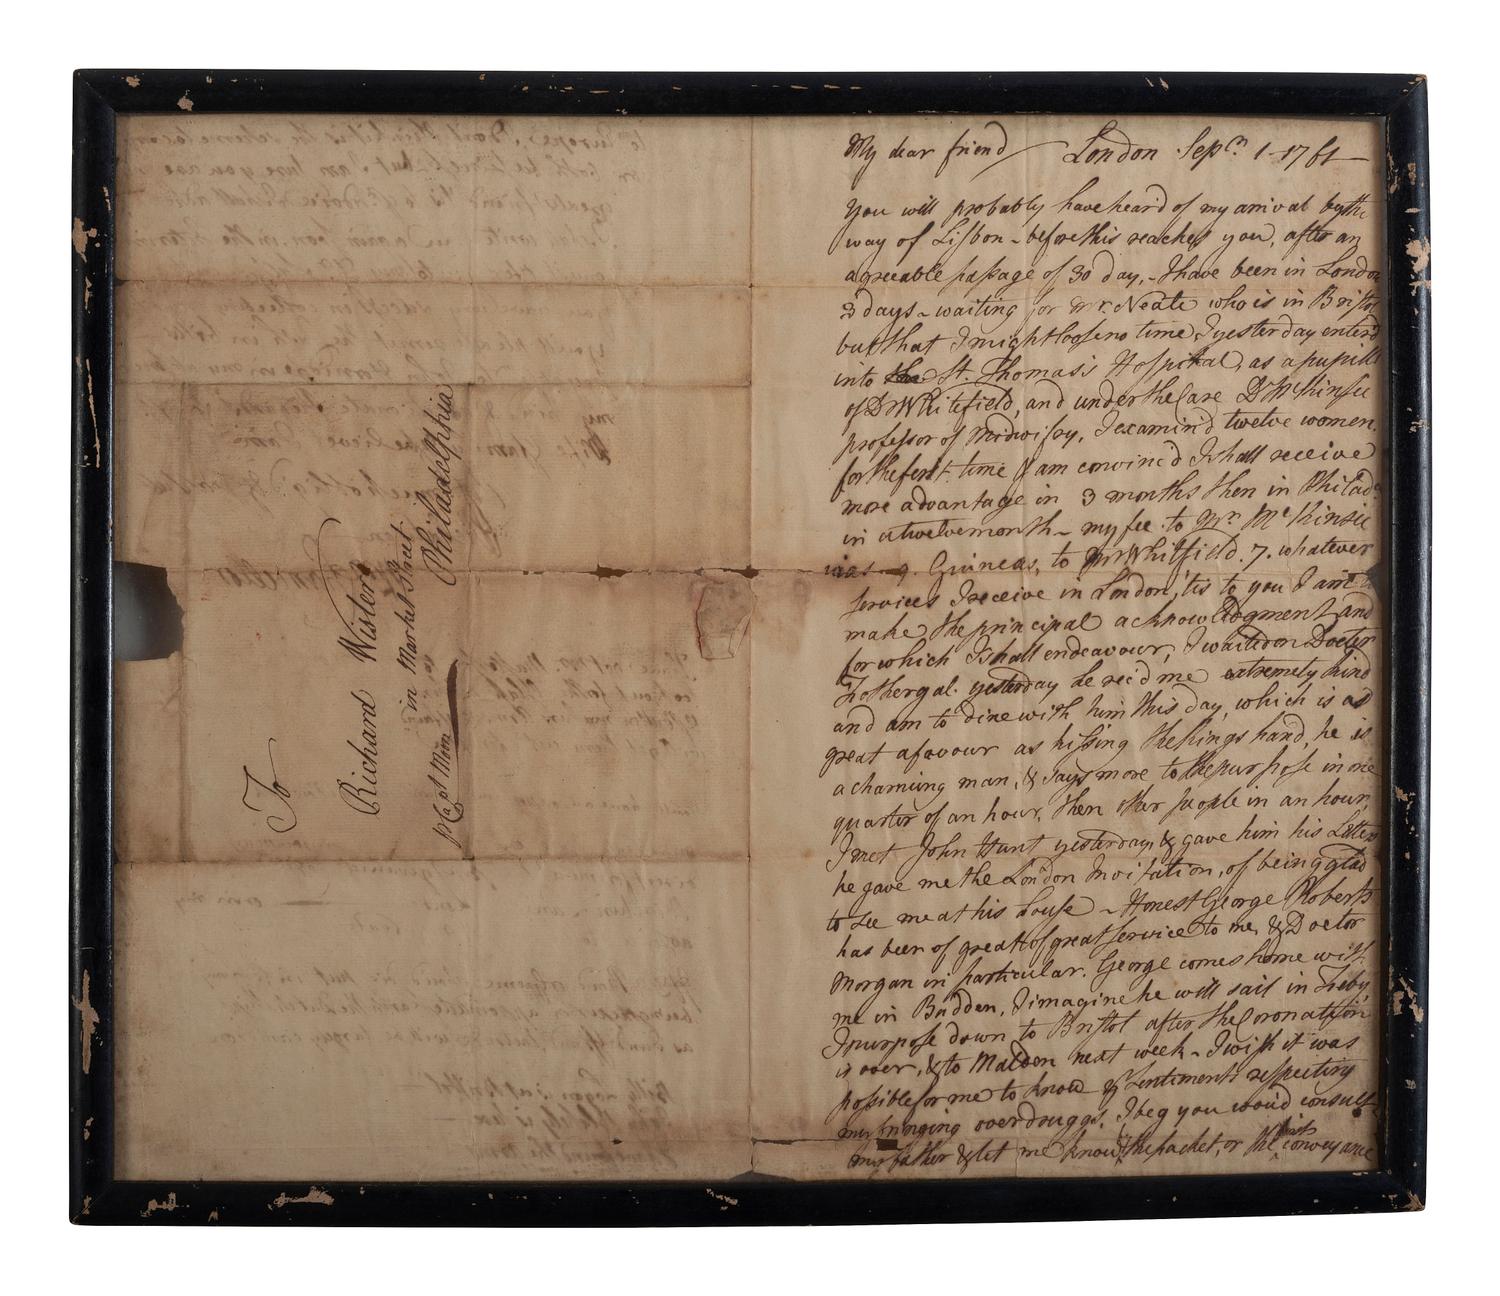 My dear friend London Sepr. 1 - 1761
You will probably have heard of my arrival by the
way of Lisbon - before this reaches you, after an
agreeable passage of 30 day, - I have been in London
3 days - waiting for Mr. Neate who is in Bristol
but that I might loose no time, I yesterday enterd
into the St. Thomas's Hospital, as a pupill
of Dr Whitefield, and under the Care Dr McKinsie
professor of Midwifry, I examin'd twelve women
for the first time & am convinc'd I shall receive
more advantage in 3 months then in Philada
in a twelvemonth - my fee to Mr. McKinsie
was 9 Guineas, to Mr Whitfield. 7. whatever
services I receive in London, 'tis to you I am to
make the principal acknowledgment and
for which I shall endeavour, I waited on Doctor
Fothergal yesterday he rec'd me extremely kind
and am to dine with him this day, which is as
great a favour as kissing the kings hand, he is
a charming man, & says more to the purpose in one
quarter of an hour, then other people in an hour,
I met John Hunt yesterday, & gave him his Letters
he gave me the London Invitation, of being glad
to see me at his house - Honest George Roberts
has been of great of great service to me, & Doctor
Morgan in particular. George comes home with
me in Budden, I imagine he will sail in Feby
I purpose down to Bristol after the Coronation
is over, & to Maldon next week - I wish it was
possible for me to know yr Sentiments respecting
my bringing over druggs, I beg you wou'd consult
my father & let me know the packet, or the first conveyance
To
Richard Wistern
in Market Street
Philadelphia
pr Capt Mim